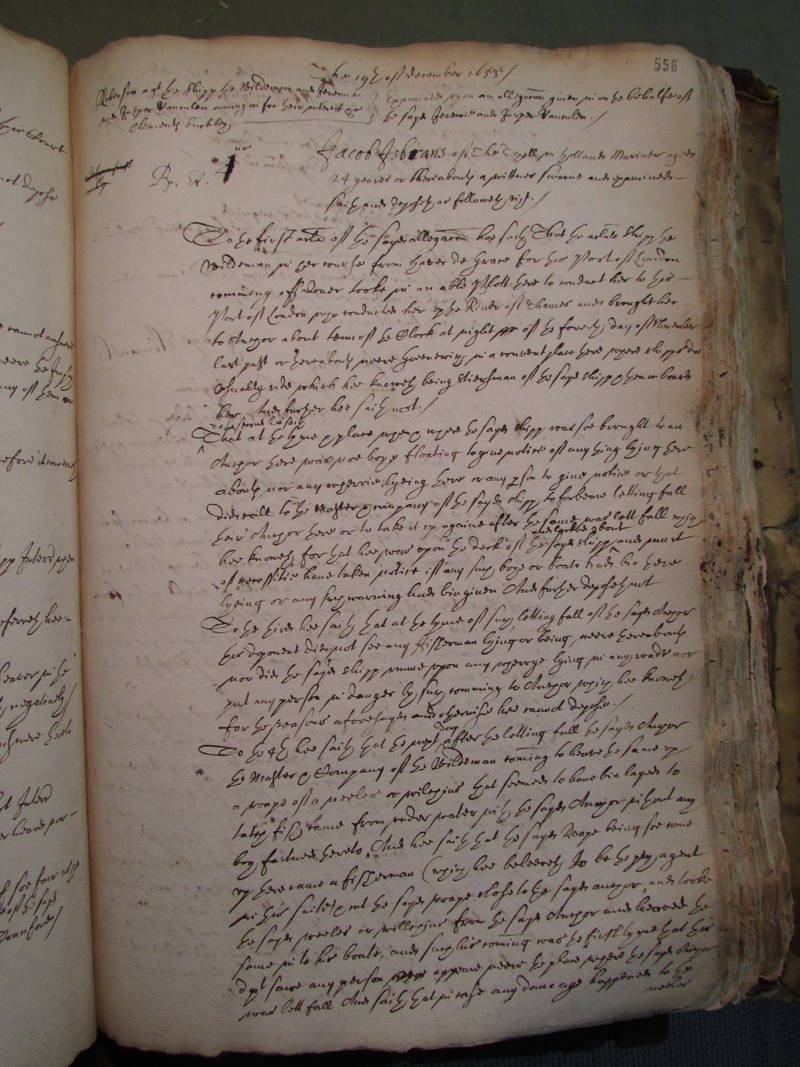 556
The 19th of december 1655
Robinson agt the shipp the Wildeman and Jeremie
and Jasper Vanculen coming in for their interest
Clements Buckley
Examined upon an allegation given in on the behalfe of
the sayd Jeremie and Jasper Vanculen.
Rp. A. 1us
Jacob Isbrans of the Texell in Holland Mariner aged
24 yeares or thereabouts a wittnes sworne and examined
saith and deposeth as followeth, vizt.
To the first arle of the sayd allegation hee saith That the arlate shipp the
Wildeman in her course from Haver de Grace for this Port of London
comming off Dover tooke in an able Pilott there to conduct her to this
Port of London who conducted her up the River of Thames and brought her
to Anchor about tenn of the Clock at night of the fourth day of November
last past or thereabouts neere Greenewich in a convenient place there where shipps doe
usually ride which hee knoweth being Stiersman of the sayd shipp then on board
her, And further hee saith not.
To the second hee saith
That at the tyme & place when & where the sayd shipp was soe brought to an
Anchor there was noe boye floating to give notice of any thing lying there
abouts nor any wherrie lyeing there or any person to give notice or that
did call to the Master & company of the sayd shipp to forbeare letting fall
their Anchor there or to take it up againe after the same was lett fall which
hee knoweth for that hee was upon the deck of the sayd shipp and looked about and must
of necessitie have taken notice if any such boye or boate had bin there
lyeing or any such warning had bin given And further deposeth not
To the third hee saith that at the tyme of such letting fall of the sayd Anchor
this deponent did not see any fisherman lying or being neere thereabouts
nor did the sayd shipp runne upon any wherrye lying in any roade nor
put any person in danger by such comming to Anchor which hee knoweth
for the reasons aforesayd and otherwise hee cannot depose.
To the 4th hee saith that the next day after the letting fall the sayd Anchor
the Master & Company of the Wildeman comming to heave the same up
a roape of a weele or willojus that seemed to have bin layed to
catch fish, came from under water with the sayd Anchor without any
boy fastned thereto, And hee saith that the sayd Roape being soe come
up there came a fisherman (which hee beleeveth to be the party agent
in this suite) & cut the sayd roape close to the sayd anchor, and tooke
the sayd weeles or willojus from the sayd Anchor and heaved the
same into his boate, and such his coming was the first tyme that this
dept sawe any person appeare neere the place where the sayd Anchor
was lett fall And saith that in case any damage happened to the
weeles